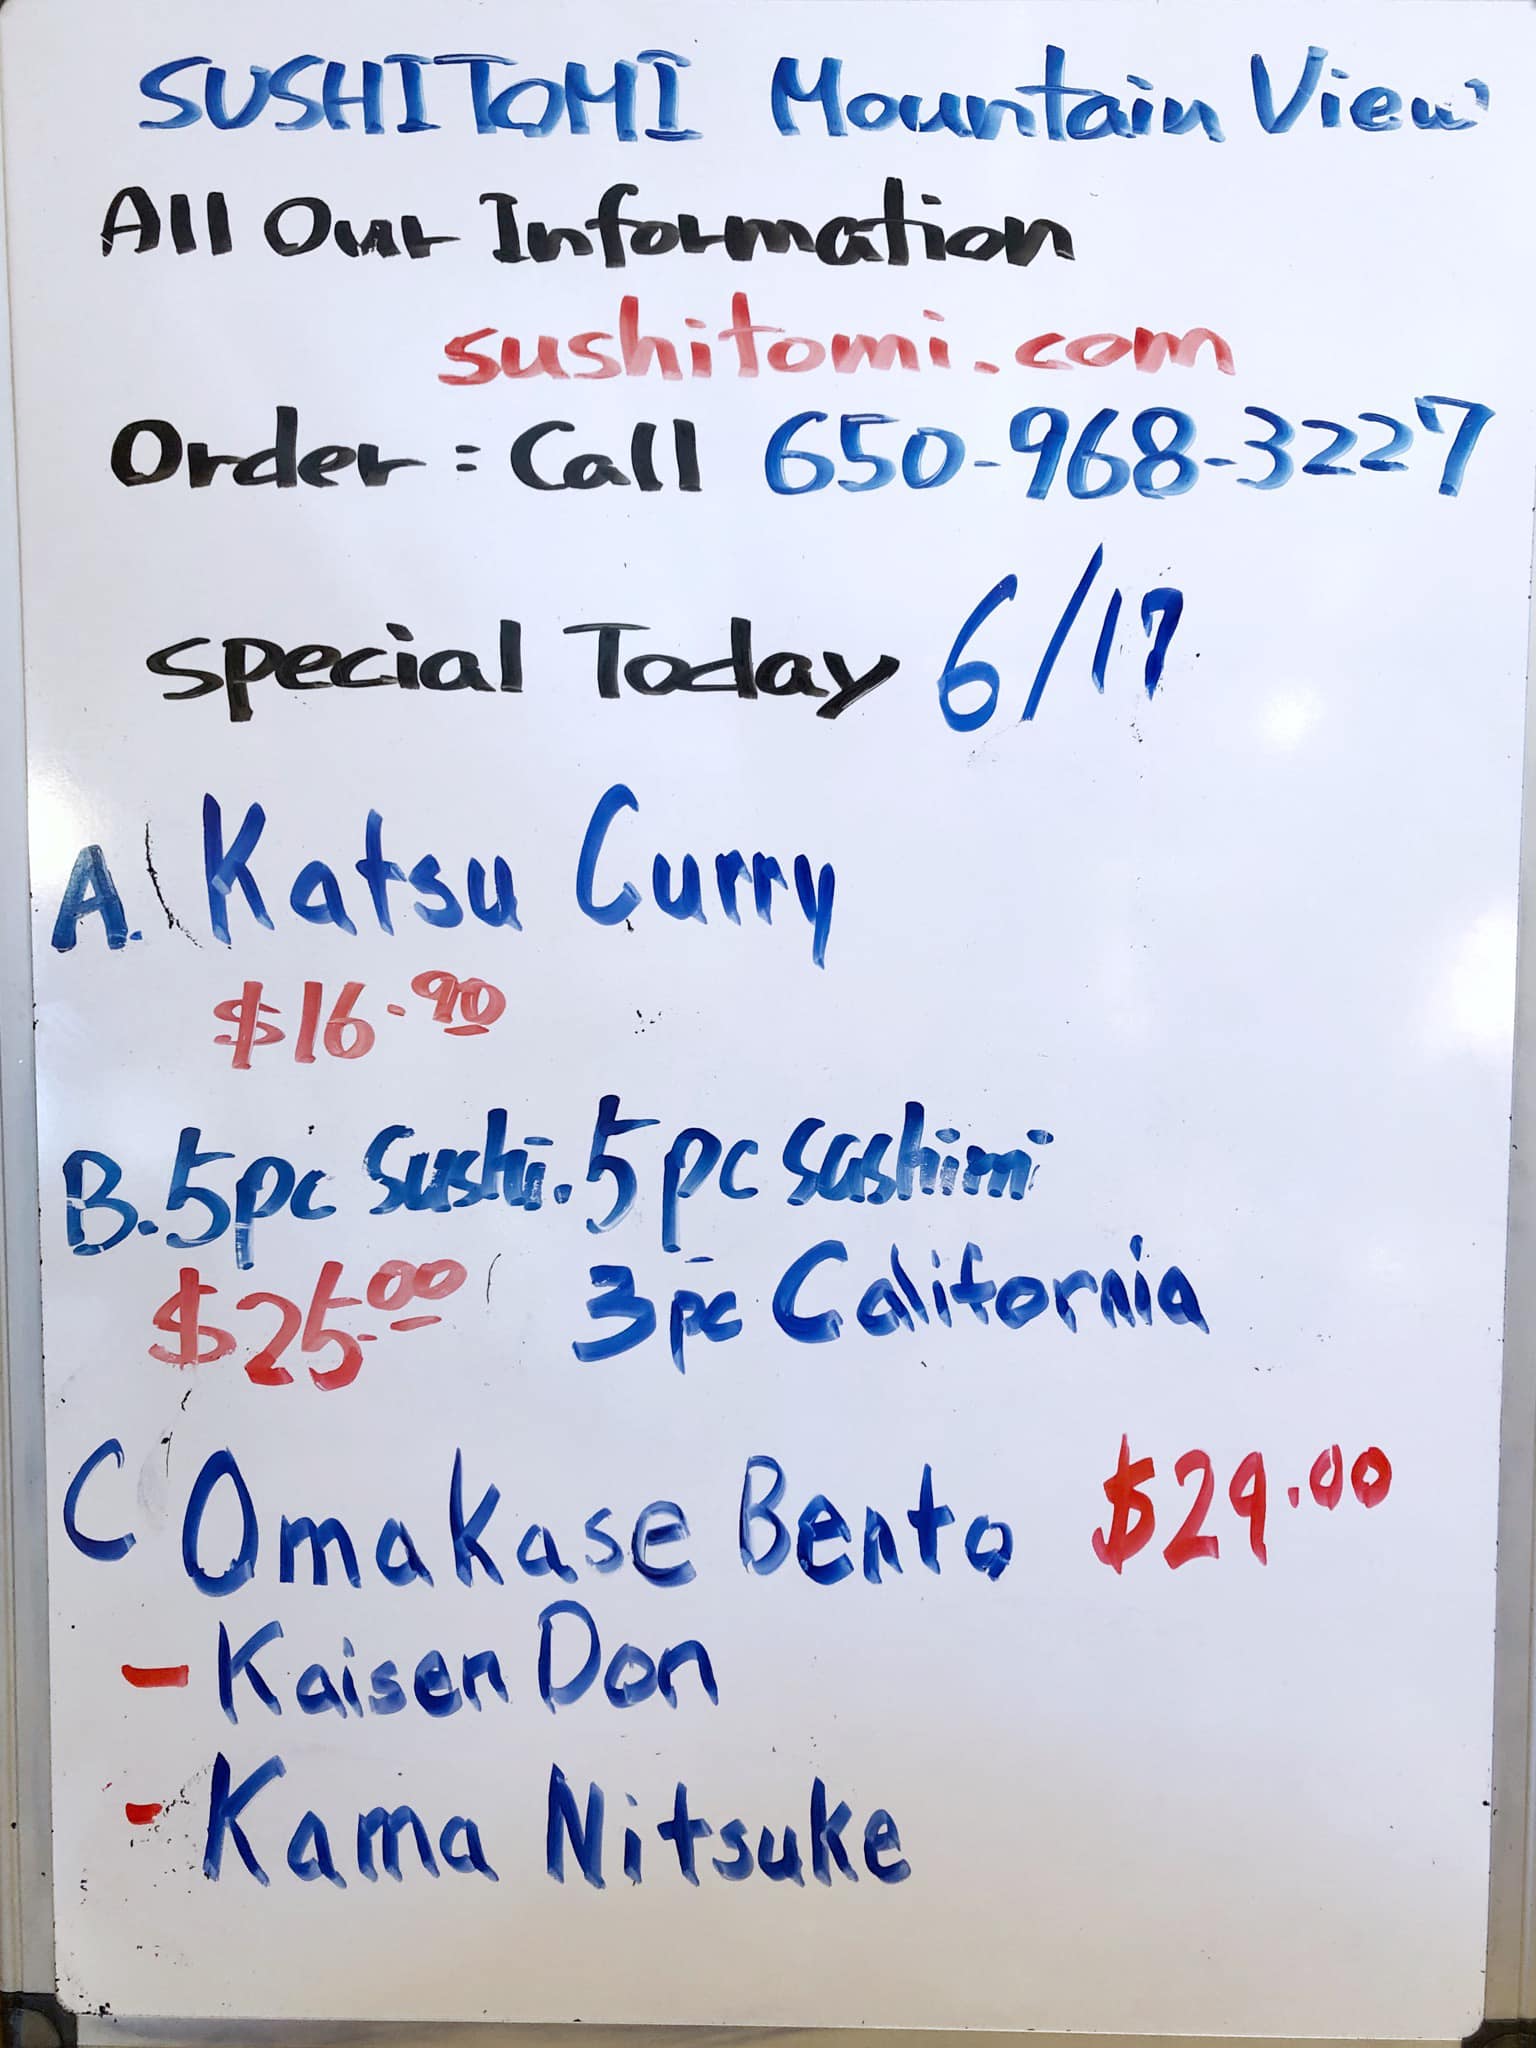 SUSHITOMI Mountain View
All Our Information
sushitomi.com
Order: Call 650-968-3227
Special Today 6/17
A. Katsu Curry
$16.90
B. 5pc Sushi. 5pc sashimi
$25.00 3pc California
C Omakase Bento $29.00
- Kaisen Don
- Kama Nitsuke